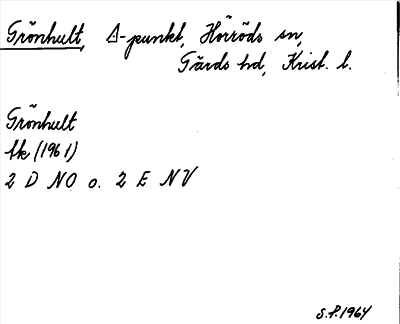 Grönhult, △-punkt, Hörröds sn,
Gärds hd, Krist. l.
Grönhult
tk (1961)
2 D NO o. 2 E NV
S.P. 1964